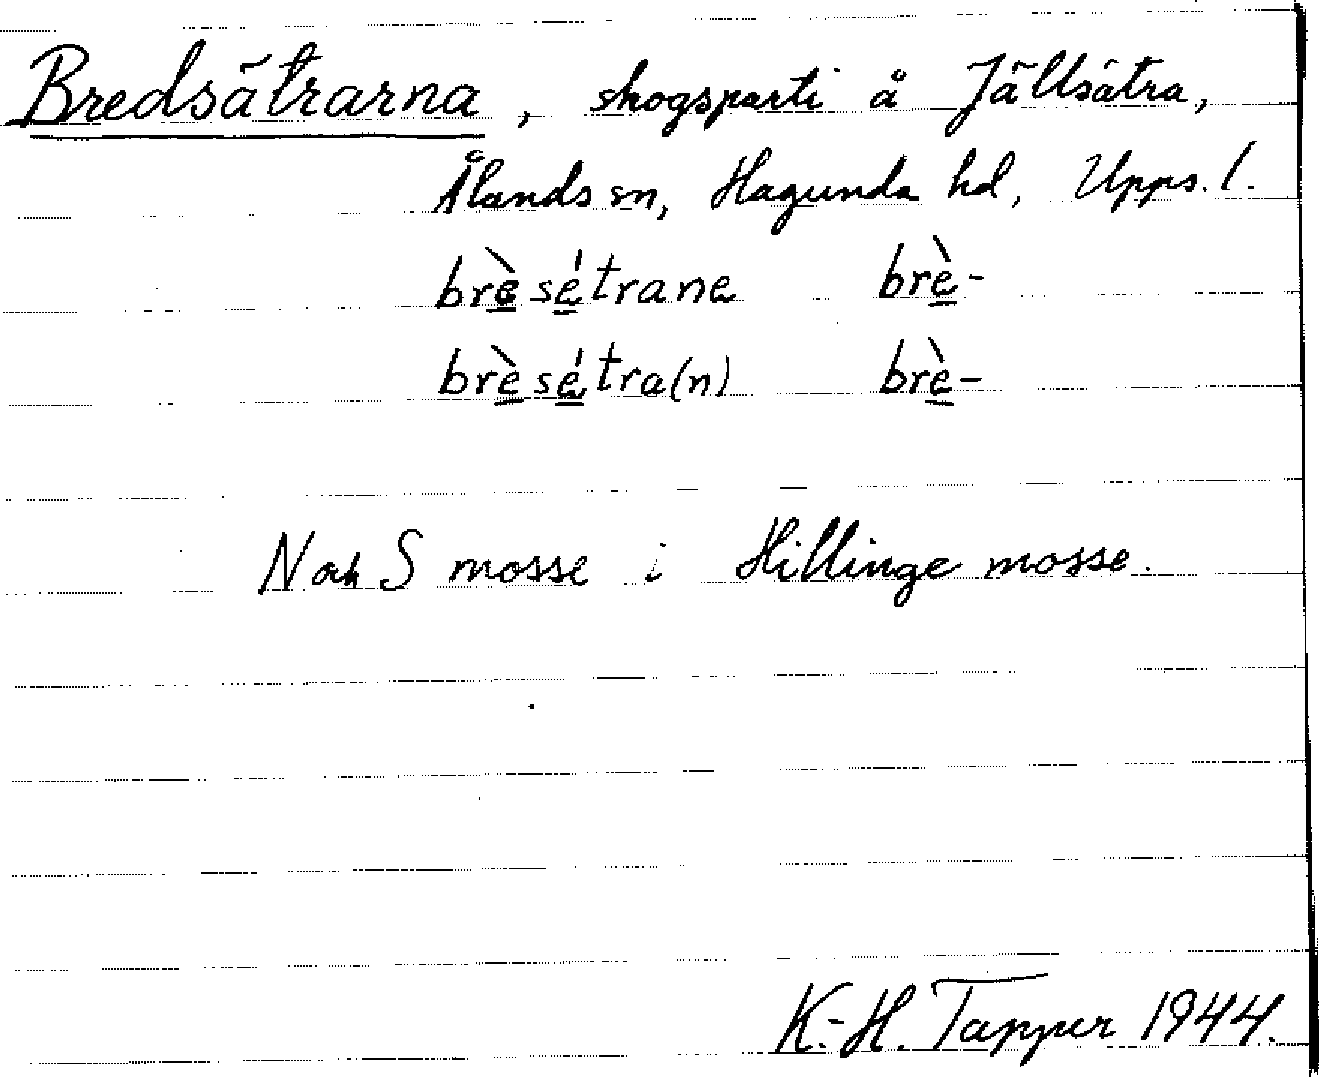 Bredsätrarna, skogsparti å Jällsätra,
Ålands sn, Hagunda hd, Upps. l.
brèsétrane brè-
brèsétra(n) brè-
N och S mosse i Hillinge mosse.
K.-H. Tapper 1944.